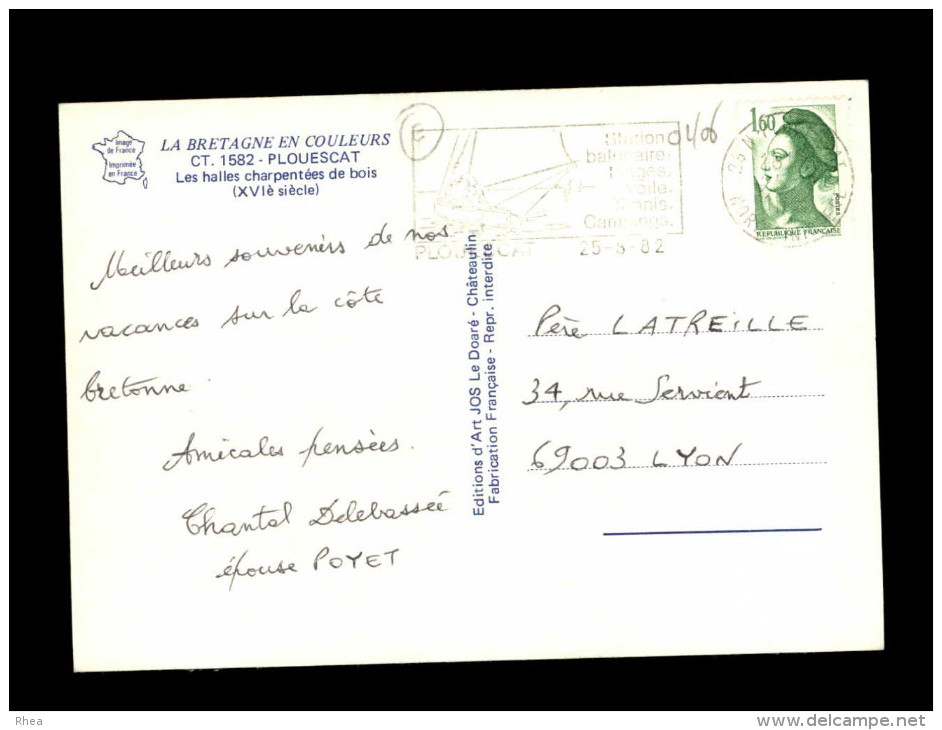 Image
de France
Imprimée
en France
LA BRETAGNE EN COULEURS
CT. 1582 - PLOUESCAT
Les halles charpentées de bois
(XVIè siècle)
E
Station
balnéaire.
Plages.
Voile.
Tennis.
Campings.
PLOUESCAT 25-8-82
0406
1,60
POSTES
REPUBLIQUE FRANÇAISE
Meilleurs souvenirs de nos
vacances sur la côte
bretonne.
Amicales pensées.
Chantal Delebassée
épouse POYET
Editions d'Art JOS Le Doaré - Châteaulin
Fabrication Française - Repr. interdite
Père LATREILLE
34, rue Servient
69003 LYON
Rhea
www.delcampe.net